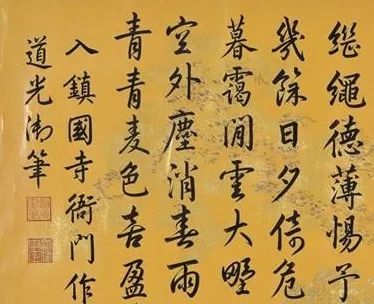 继绳德薄惕予
幾餘日夕倚危
暮霭閒雲大墅
空外塵消春雨
青青麦色喜盈
入鎮國寺衙門作
道光御筆